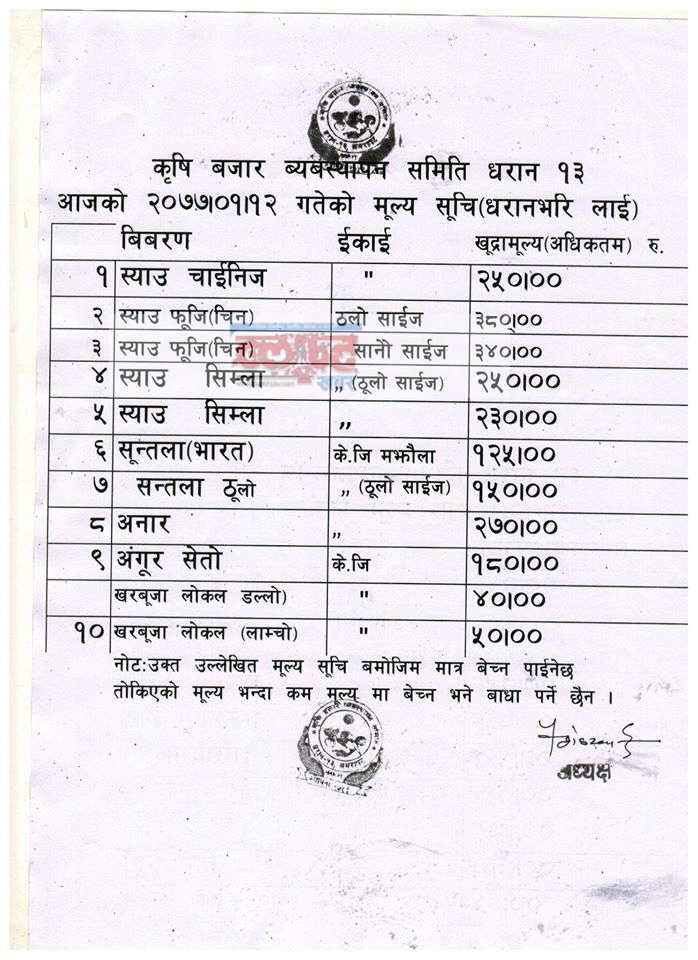 कृषि बजार ब्यबस्थापन समिति धरान १३
आजको २०७७।०१।१२ गतेको मूल्य सूचि(धरानभरि लाई)
बिबरण ईकाई खूद्रामूल्य(अधिकतम) रु.
१ स्याउ चाईनिज " २५०।००
२ स्याउ फूजि(चिन) ठलो साईज ३८०।००
३ स्याउ फूजि(चिन) सानोै साईज ३४०।००
४ स्याउ सिम्ला ,, (ठूलो साईज) २५०।००
५ स्याउ सिम्ला ,, २३०।००
६ सून्तला(भारत) के.जि मझौला १२५।००
७ सन्तला ठूलो ,, (ठूलो साईज) १५०।००
८ अनार ,, २७०।००
९ अंगूर सेतो के.जि १८०।००
खरबूजा लोकल डल्लो) " ४०।००
१० खरबूजा लोकल (लाम्चो) " ५०।००
नोट:उक्त उल्लेखित मूल्य सूचि बमोजिम मात्र बेच्न पाईनेछ
तोकिएको मूल्य भन्दा कम मूल्य मा बेच्न भने बाधा पर्ने छैन ।
अध्यक्ष